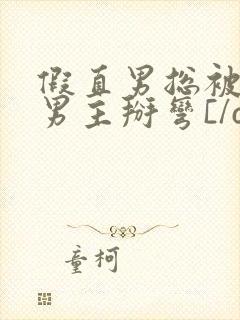 假直男惨被
男主掰弯[/c
童柯